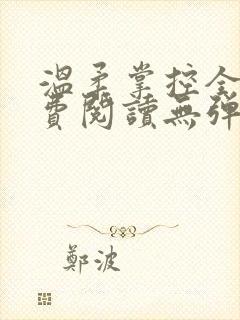 溫柔掌控全
費閱讀無彈
鄭波